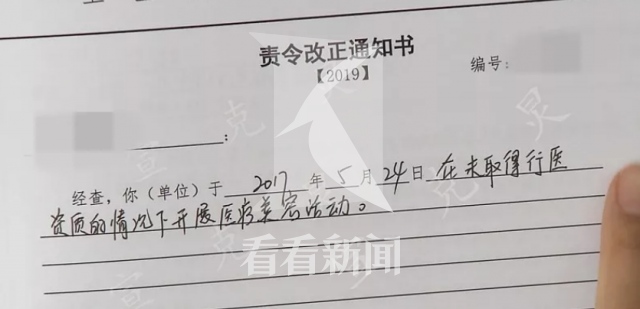 责令改正通知书
【2019】
编号:
:
经查,你(单位)于 2017 年 5 月 24 日 在未取得行医
资质的情况下开展医疗美容活动。
看看新闻